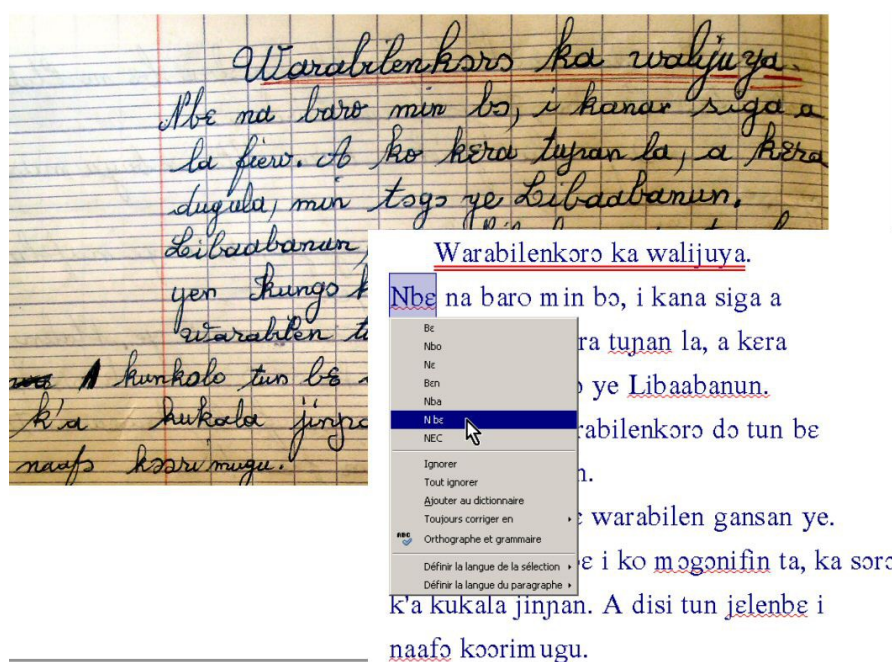 Warabilenkɔrɔ ka walijuya.
Nbɛ na baro min bɔ, i kanar siga a
la fiɛw. A ko kɛra tuɲan la, a kɛra
dugula, min tɔgɔ ye Libaabanun.
Libaabanun,
yen kungo k
warabilen tu
kunkolo tun bɛ
k'a kukala jinɲa
naafɔ kɔɔrimugu.
Warabilenkɔrɔ ka walijuya.
Nbɛ na baro min bɔ, i kana siga a
ra tuɲan la, a kɛra
ye Libaabanun.
rabilenkɔrɔ dɔ tun bɛ
n.
ɛ warabilen gansan ye.
ɛ i ko mɔgɔnifin ta, ka sɔrɔ
k'a kukala jinɲan. A disi tun jɛlenbɛ i
naafɔ kɔɔrimugu.
Bɛ
Nbo
Nɛ
Ben
Nba
N bɛ
NEC
Ignorer
Tout ignorer
Ajouter au dictionnaire
Toujours corriger en
ABC Orthographe et grammaire
Définir la langue de la sélection
Définir la langue du paragraphe